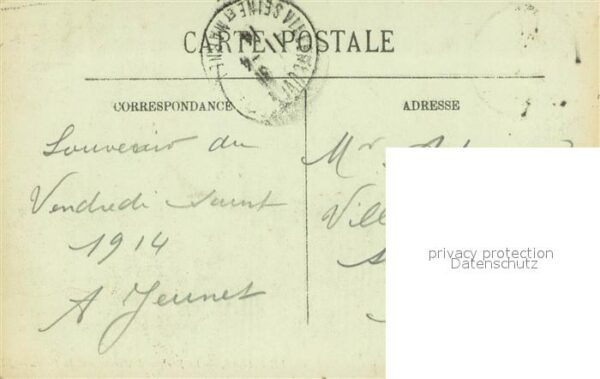 CARTE POSTALE
SEINE ET MARNE
CORRESPONDANCE
ADRESSE
Souvenir du
Vendredi saint
1914
A Jeunet
Mr
Vill
privacy protection
Datenschutz